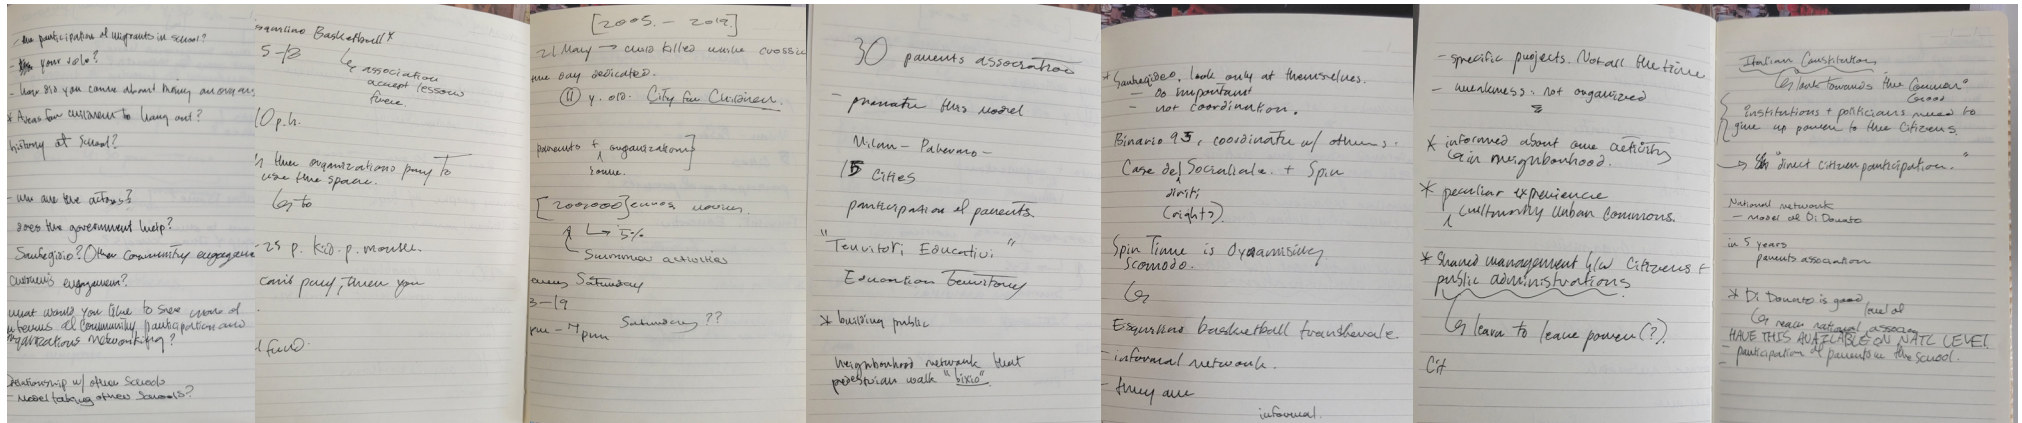 the participation of migrants in school?
- your role?
- how did you come about being an organ
* Areas for children to hang out?
history at school?
- who are the actors?
does the government help?
Santegidio? Other community engageme
engagement?
what would you like to see more of
in terms of community participation and
organizations networking?
relationship w/ other schools
- model taking other schools?
squilino Basketball *
5-13
association
accept lesson
free.
10 p.h.
the organizations pay to
use the space.
to
25 p. kid. p. month.
can't pay, then you
fund.
[2005. - 2019]
21 May → child killed while crossin
the day dedicated.
(11) y. old. City for Children.
parents + organizations]
some.
[200,000] euros
5%
Summer activities
every Saturday
3-19
pm - 7pm
Saturday ??
30 parents association
- promote this model
Milan - Palermo -
15 cities
participation of parents.
"Territori Educativi"
Education Territory
* building public
neighborhood network that
pedestrian walk "bixio"
* Santegideo, look only at themselves.
- Do important
- not coordination.
Binario 95, coordinate w/ others.
Case del Socialiale. + Spin
diritti
(rights)
Spin Time is Dynamising
Scomodo.
Esquilino basketball transhevale.
- informal network.
- they are
informal.
- specific projects. Not all the time
- weakness: not organized
* informed about one activity
in neighborhood.
* peculiar experience
community Urban commons.
* Shared management b/w citizens +
public administrations
learn to leave power (?).
Cit
Italian Constitution
work towards the "Common
Good
institutions + politicians need to
give up power to the Citizens.
→ "direct citizen participation."
National network
- model of Di Donato
in 5 years
parents association
* Di Donato is good
level of
reach national assoc
HAVE THIS AVAILABLE ON NATL LEVEL
- participation of parents in the school.